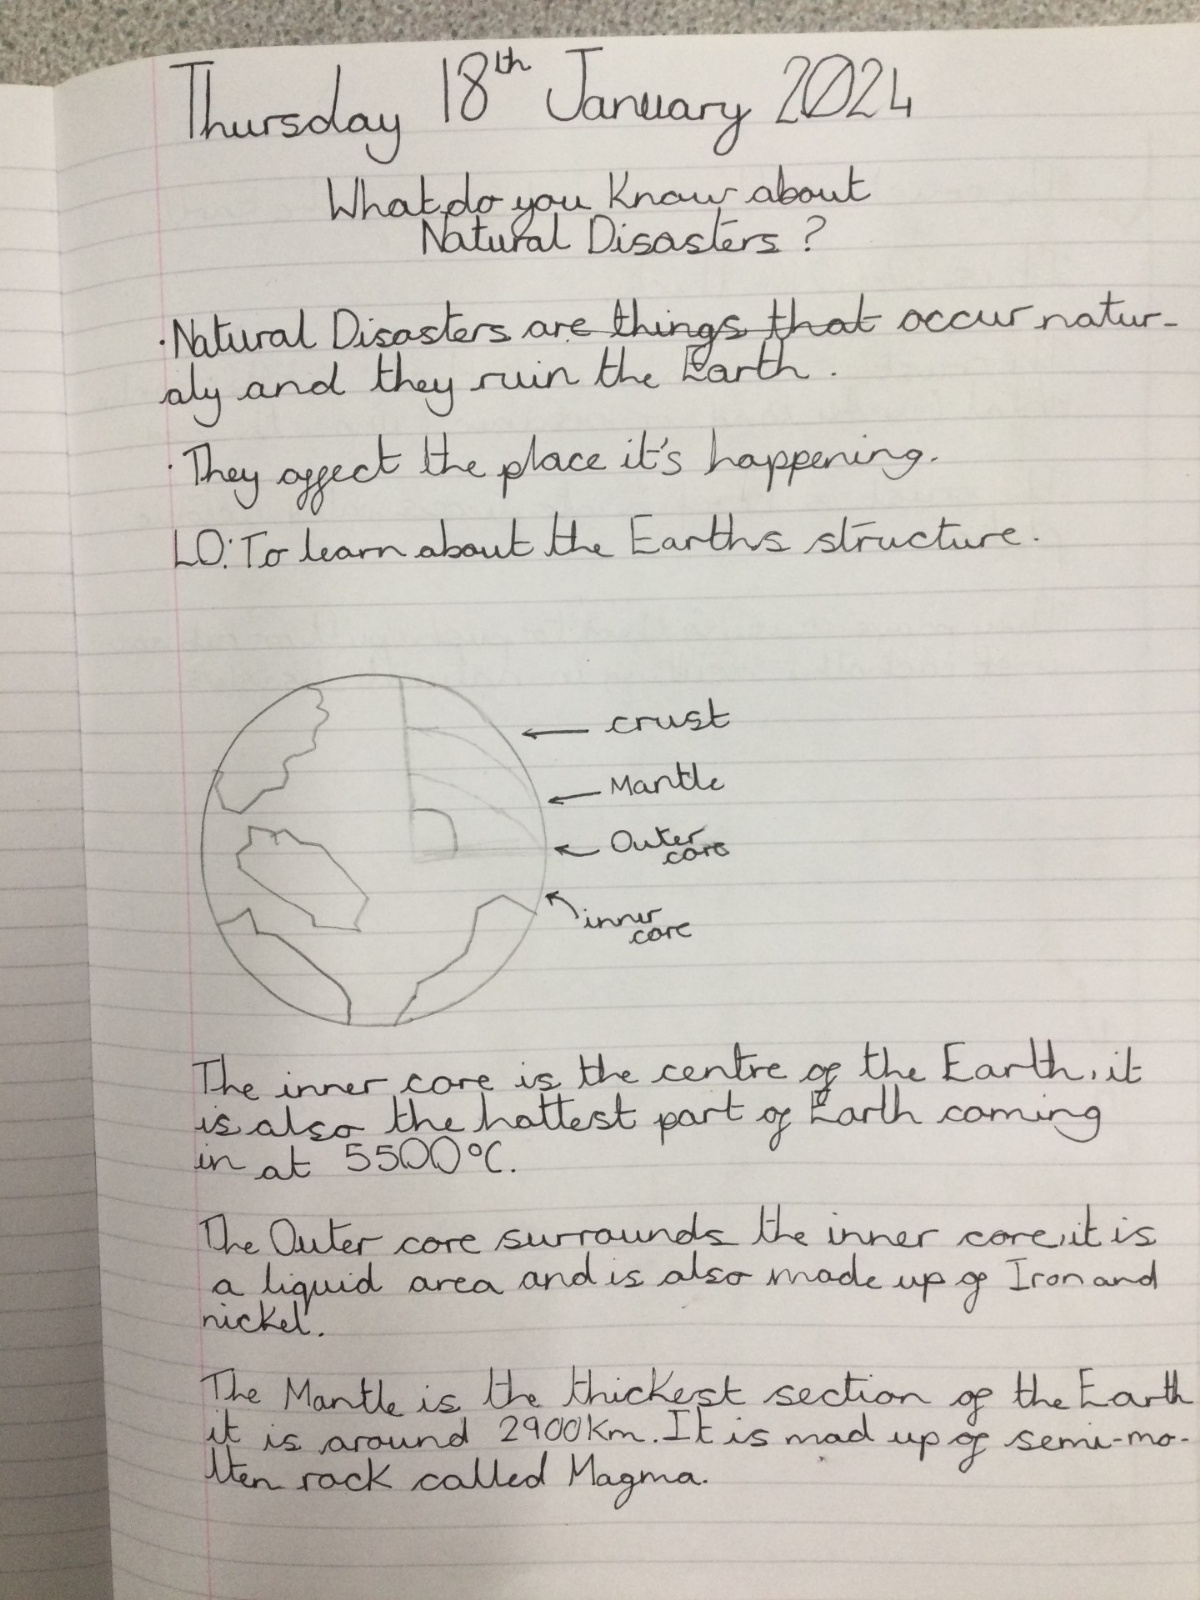 Thursday 18th January 2024
What do you Know about
Natural Disasters ?
· Natural Disasters are things that occur natur-
aly and they ruin the Earth.
· They affect the place it's happening.
LO: To learn about the Earths structure.
crust
Mantle
Outer
core
inner
core
The inner core is the centre of the Earth, it
is also the hottest part of Earth coming
in at 5500°C.
The Outer core surrounds the inner core, it is
a liquid area and is also made up of Iron and
nickel.
The Mantle is the thickest section of the Earth
it is around 2900Km. It is mad up of semi-mo-
lten rock called Magma.